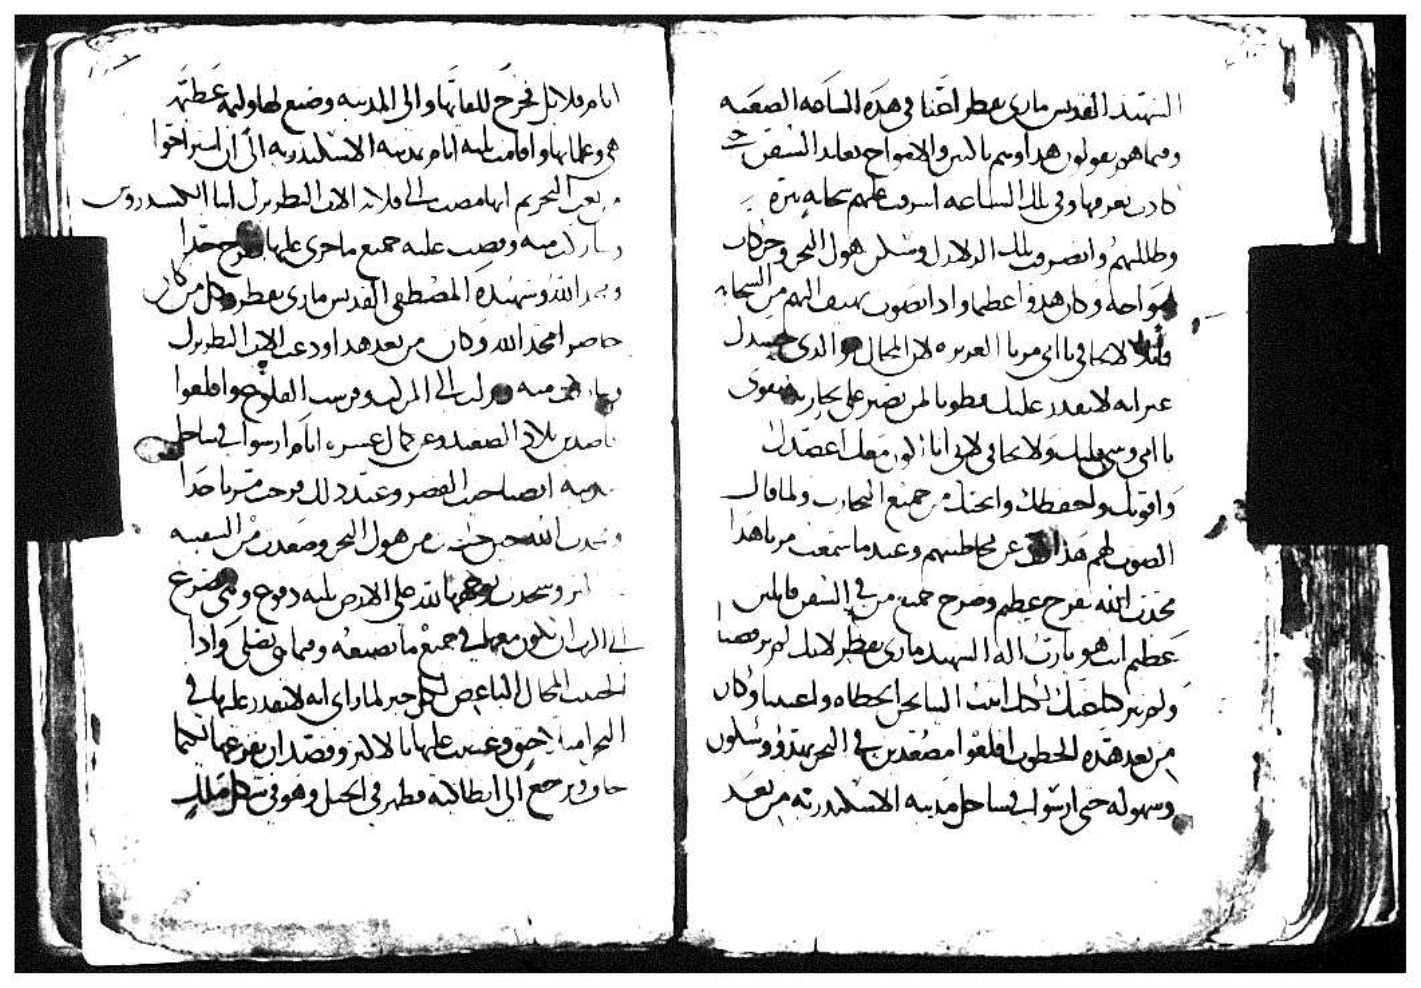 الشهيد القديس ماري بقطر اغتنا في هذه الساعه الصعبه
وفيما هم يقولون هدا وسم بالسر والامواج تعلد السفن حتى
كادت تغرقها وفي تلك الساعه اشرقت عليهم سحابه نيره
وظللتهم وانصرفت تلك الدلازل وسكن هول البحر وحركات
امواجه وكان هدوا عظيما وادا بصوت يهتف اليهم من السحابه
قايلا لا تخافي يا امي مرتا العزيزه لان المحال هو الدي حسدك
غير انه لا يقدر عليك فطوبا لمن يصبر علي تجاربه تقوي
يا امي وسي قلبك ولا تخافي لاني انا اكون معك اعضدك
واقويك واحفظك وانجيك من جميع التجارب ولما قال
الصوت لهم هدا عن مخاطبتهم وعندما سمعت مرتا هدا
مجدت الله بفرح عظيم وصرخ جميع من في السفن قايلين
عظيم انت هو يارب اله الشهيد ماري بقطر لانك لم ترفضنا
ولم تبر كلمتك لكل انت السايحن الخطاه ولعبدنا وكان
من بعد هده الخطوب اقلعوا مصعدين في البحر بهدوو وسكون
وسهوله حتى ارسوا الي ساحل مدينه الاسكندريه من بعد
ايام قلايل فخرج للقايها والي المدينه وضع لها وليمه عظيمه
هي وغلمانها واقامت تلته ايام بمدينه الاسكندريه الي ان استراحوا
من تعب البحر ثم انها مضت الي قلايه الاب البطريرك انبا الكسندروس
وتباركت منه وقصت عليه جميع ما جرى عليها ففرح جدا
ومجد الله وشهيده المصطفي القديس ماري بقطر وكل من كان
حاضرا مجد الله وكان من بعد هدا ودعت الاب البطريرك
وتباركت منه ونزلت الي المركب وفرست القلوع واقلعوا
قاصدين بلاد الصعيد وعن كمال عشره ايام ارسوا الي ساحل
مدينه انصنا صاحب القصر وعند دلك فرحت مرتا جدا
ومجدت الله حين نجت من هول البحر وصعدت من السفينه
الي البر وسجدت بوجهها لله على الارض بلته دموع وهي تصرخ
الي الرب ان يكون معها في جميع ما تصنعه وفيما هي تصلي وادا
الخصب المحال الباغض لكل خير لما راي انه لا يقدر عليها في
البحر امتلا حنق وغضب عليها بالاكثر وقصد ان يفزعها لكيما
تخاف وترجع الي انطاكيه فظهر في الجبل وهو في شكل ملك